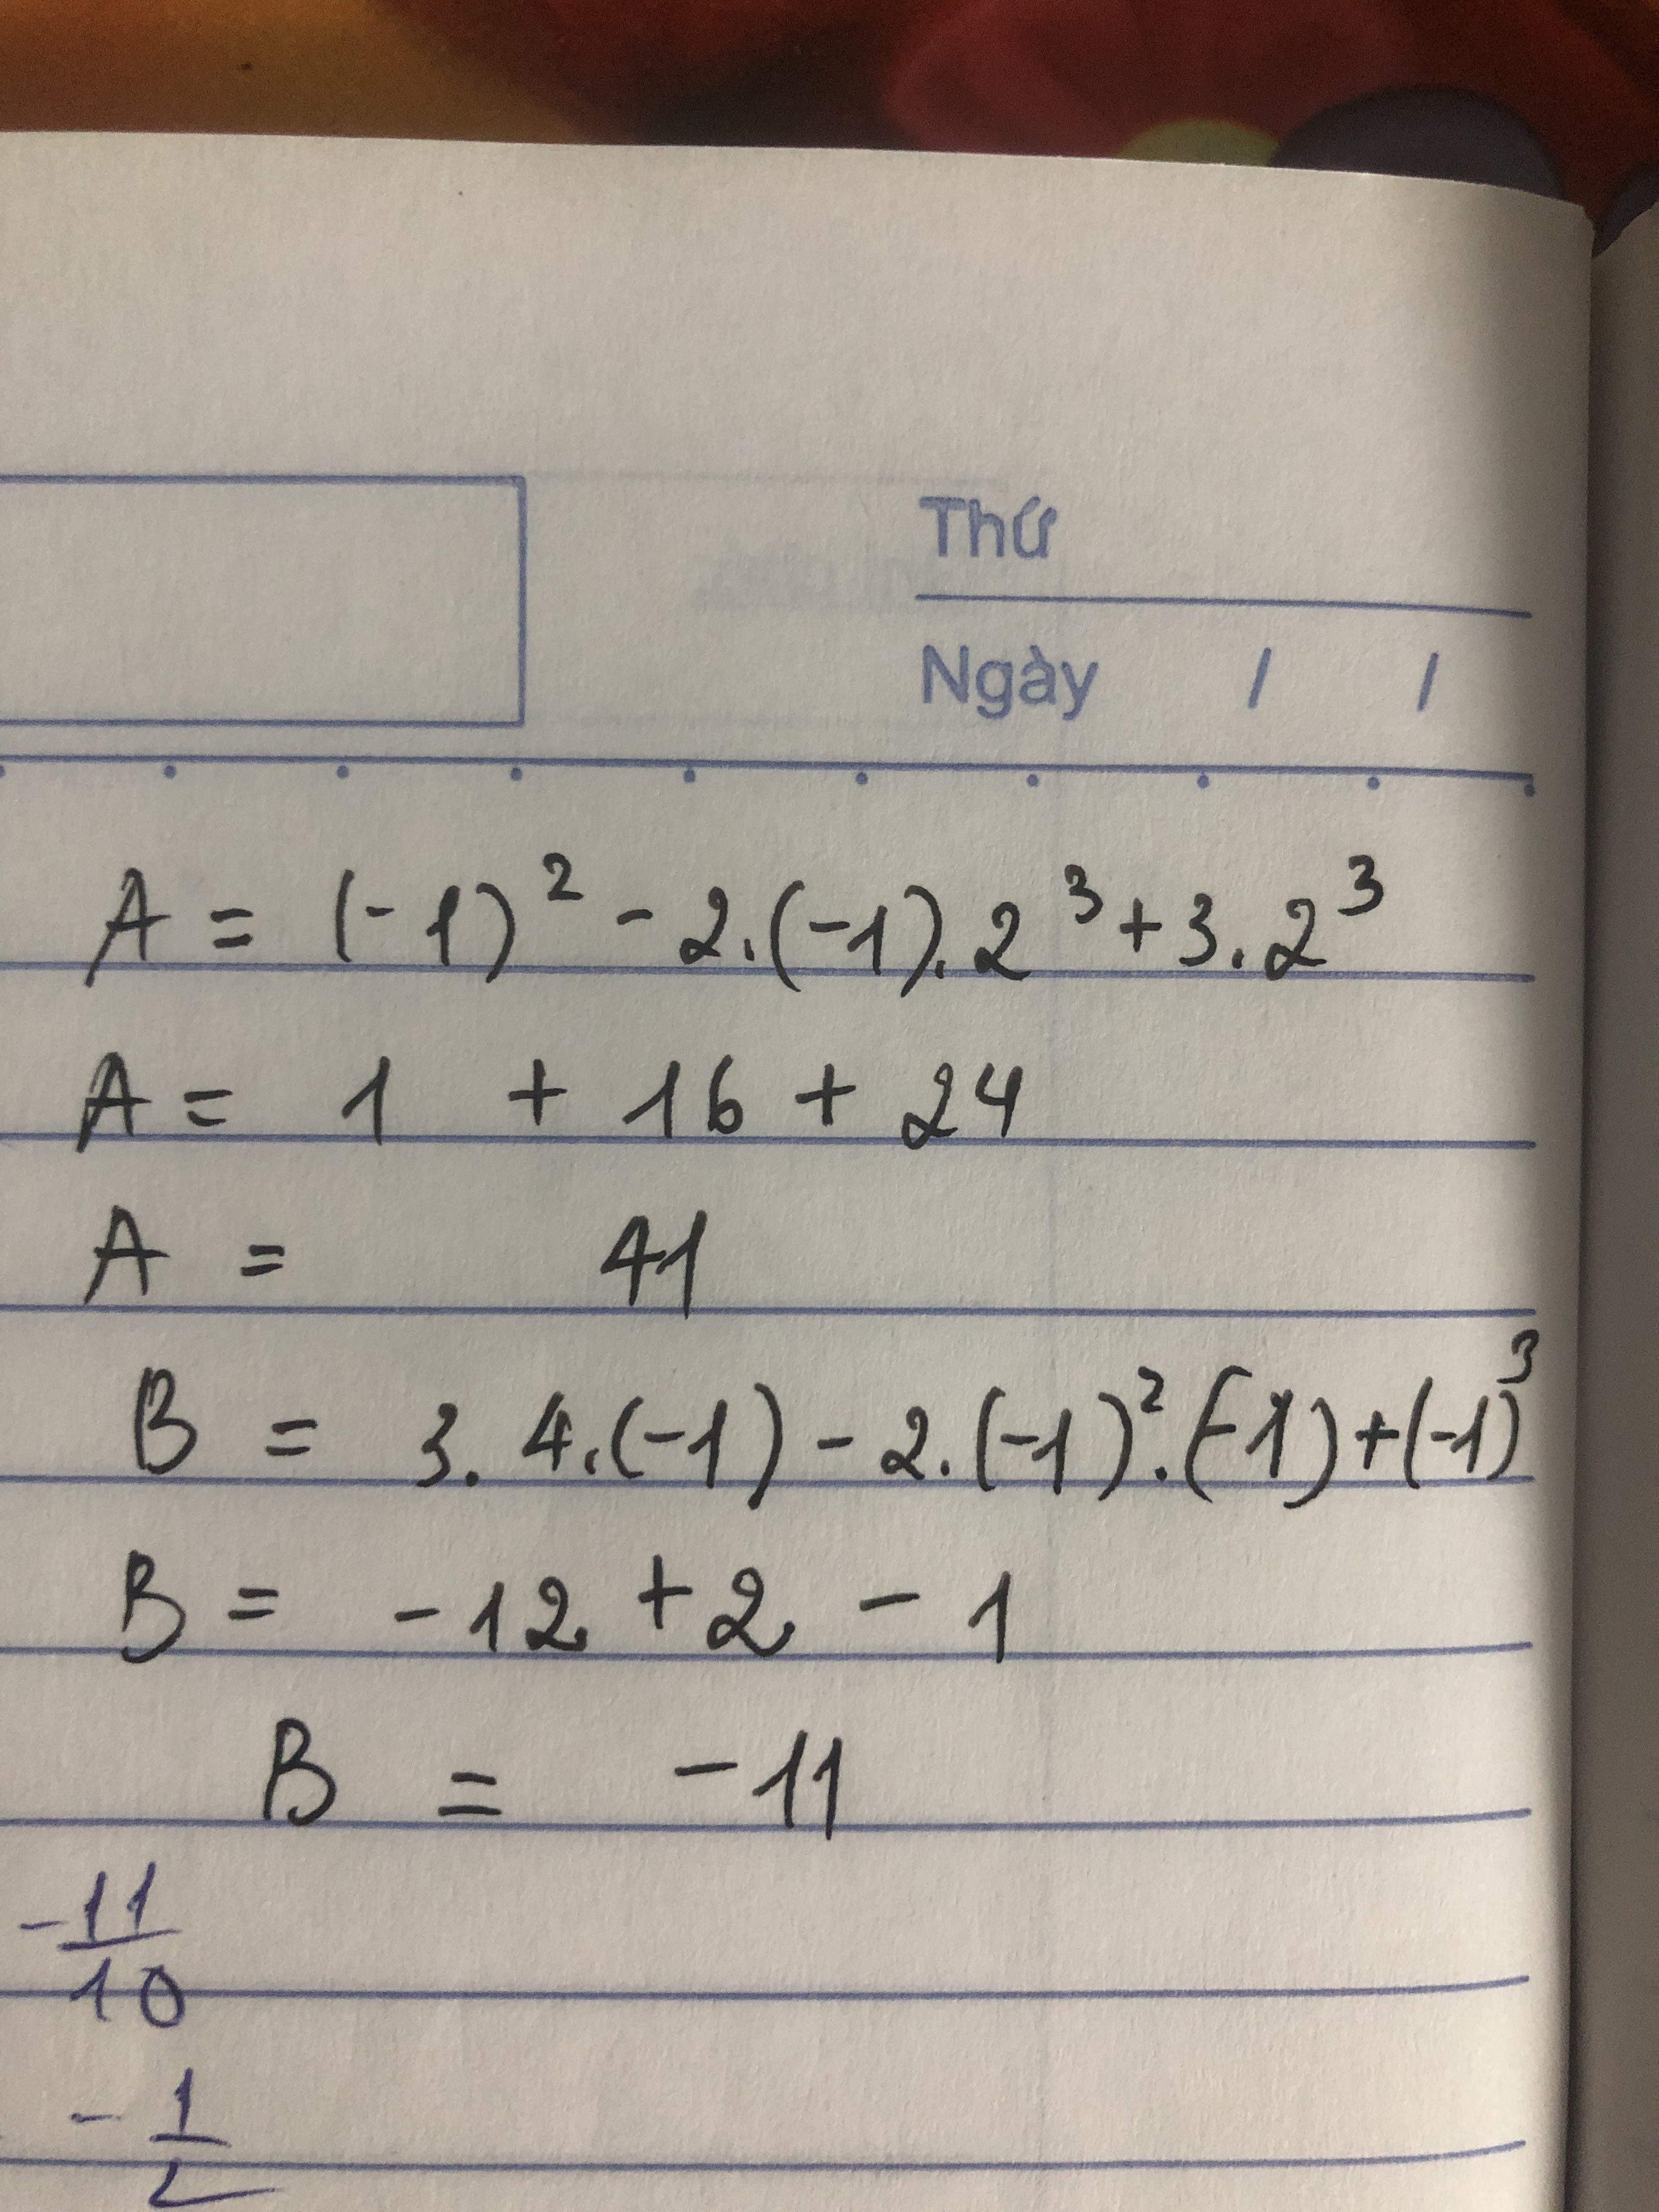 Thứ
Ngày / /
A = (-1)² - 2.(-1).2³ + 3.2³
A = 1 + 16 + 24
A = 41
B = 3.4.(-1) - 2.(-1)².(-1) + (-1)³
B = -12 + 2 - 1
B = -11
-11/10
-1/2